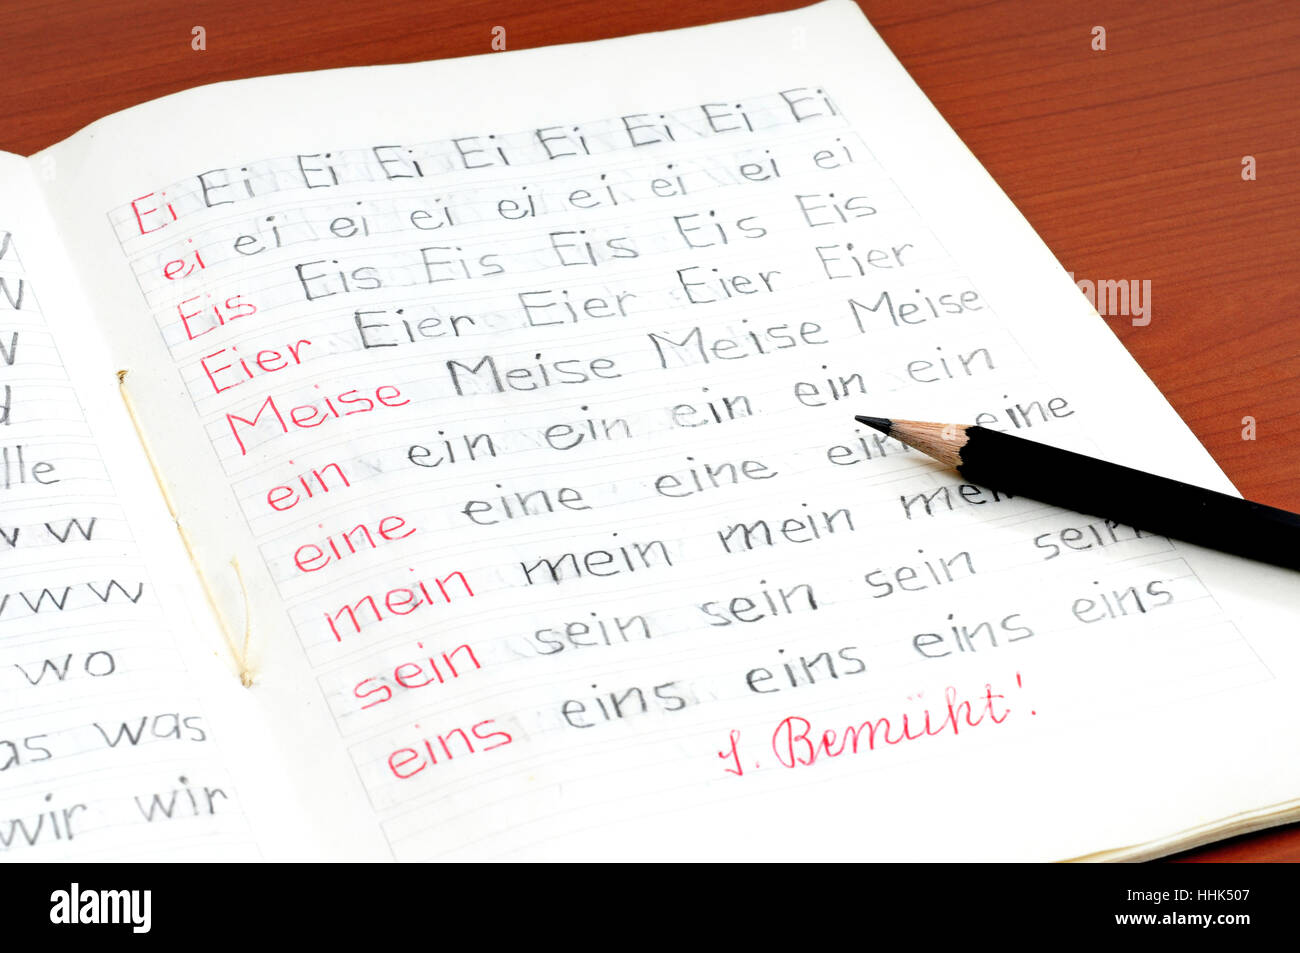 lle
w w
w w w
wo
as was
wir wir
Ei Ei Ei Ei Ei Ei Ei Ei Ei
ei ei ei ei ei ei ei ei ei
Eis Eis Eis Eis Eis Eis
Eier Eier Eier Eier Eier
Meise Meise Meise Meise
ein ein ein ein ein ein
eine eine eine eine eine
mein mein mein mein
sein sein sein sein sein
eins eins eins eins eins
Bemüht!
alamy
Image ID: HHK507
www.alamy.com